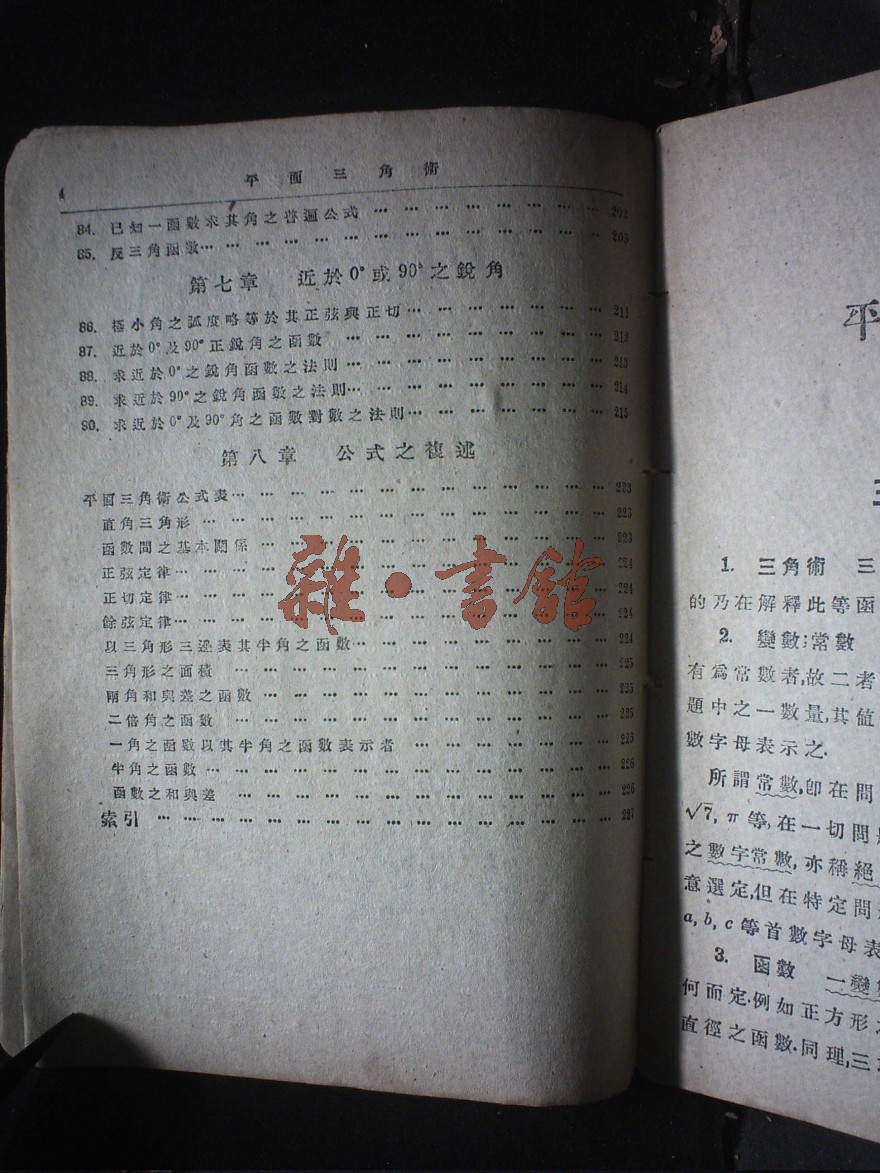 4
平面三角術
84. 已知一函數求其角之普遍公式 … … … … … … … … … 202
85. 反三角函數… … … … … … … … … … … … … … … 205
第七章 近於0°或90°之銳角
86. 極小角之弧度略等於其正弦與正切… … … … … … … … 211
87. 近於0°及90°正銳角之函數 … … … … … … … … … … 212
88. 求近於0°之銳角函數之法則… … … … … … … … … … 213
89. 求近於90°之銳角函數之法則… … … … … … … … … 214
90. 求近於0°及90°角之函數對數之法則… … … … … … … 215
第八章 公式之複述
平面三角術公式表… … … … … … … … … … … … … … 223
直角三角形 … … … … … … … … … … … … … … … 223
函數間之基本關係 … … … … … … … … … … … … … 223
正弦定律… … … … … … … … … … … … … … … … 224
正切定律… … … … … … … … … … … … … … … … 224
餘弦定律… … … … … … … … … … … … … … … … 224
以三角形三邊表其半角之函數… … … … … … … … … 224
三角形之面積 … … … … … … … … … … … … … … 225
兩角和與差之函數 … … … … … … … … … … … … … 225
二倍角之函數 … … … … … … … … … … … … … … 225
一角之函數以其半角之函數表示者 … … … … … … … 225
半角之函數 … … … … … … … … … … … … … … … 226
函數之和與差 … … … … … … … … … … … … … … 226
索引 … … … … … … … … … … … … … … … … … 227
雜·書館
平
1. 三角術 三
的乃在解釋此等函
2. 變數;常數
有爲常數者,故二者
題中之一數量,其值
數字母表示之.
所謂常數,卽在問
√7, π等,在一切問
之數字常數,亦稱絕
意選定,但在特定問
a, b, c等首數字母表
3. 函數 一變
何而定.例如正方形
直徑之函數.同理,三